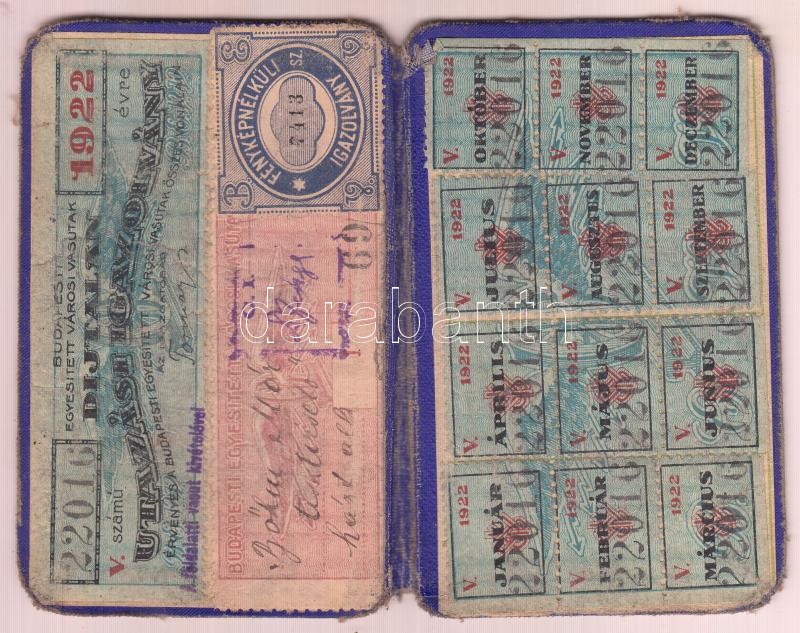 BUDAPESTI
EGYESITETT VÁROSI VASUTAK
DIJTALAN
1922
évre
22016
V. számú
UTAZÁSI IGAZOLVÁNY
ÉRVÉNYES A BUDAPESTI EGYESITETT VÁROSI VASUTAK ÖSSZES VONALAIN
AZ IGAZGATÓSÁG
A földalatti vasut kivételével
FÉNYKÉPNÉLKÜLI
SZ.
7413
IGAZOLVÁNY
BUDAPESTI EGYESITETT VÁROSI VASUTAK
69
Böhm Mór
darabanth
V. 1922
OKTÓBER
22016
V. 1922
NOVEMBER
22016
V. 1922
DECZEMBER
22016
V. 1922
JULIUS
22016
V. 1922
AUGUSZTUS
22016
V. 1922
SZEPTEMBER
22016
V. 1922
ÁPRILIS
22016
V. 1922
MÁJUS
22016
V. 1922
JUNIUS
22016
V. 1922
JANUÁR
22016
V. 1922
FEBRUÁR
22016
V. 1922
MÁRCIUS
22016